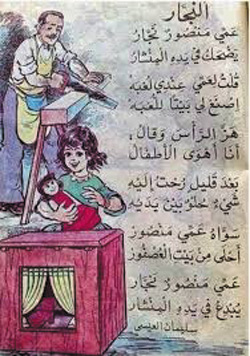 النجار
عَمّي مَنْصُورٌ نَجّارْ
يَضْحَكُ في يَدِهِ المِنْشارْ
قُلْتُ لِعَمّي عِنْدي لُعْبَهْ
اِصْنَعْ لي بَيْتًا لِلُّعْبَهْ
هَزَّ الرَّأْسَ وَقالَ:
أَنا أَهْوَى الأَطْفالْ
بَعْدَ قَليلٍ رُحْتُ إِلَيْهِ
شَيْءٌ حُلْوٌ بَيْنَ يَدَيْهِ
سَوّاهُ عَمّي مَنْصُورْ
أَحْلَى مِنْ بَيْتِ العُصْفُورْ
عَمّي مَنْصُورٌ نَجّارْ
يُبْدِعُ في يَدِهِ المِنْشارْ
سليمان العيسى